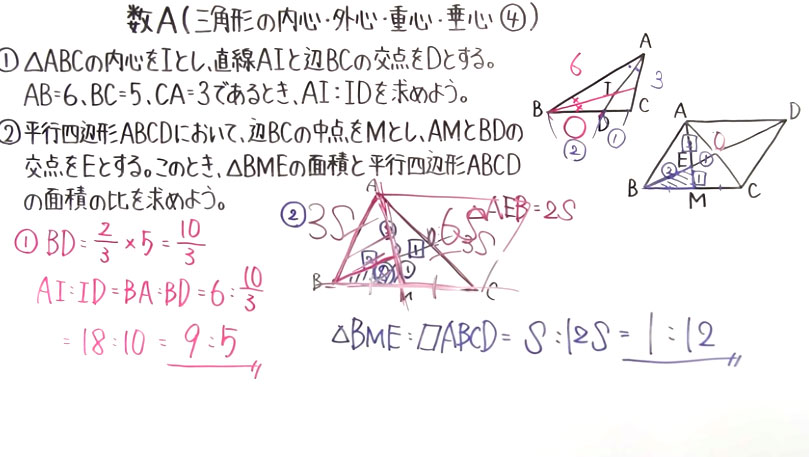 数A(三角形の内心・外心・重心・垂心④)
① △ABCの内心をIとし、直線AIと辺BCの交点をDとする。
AB=6、BC=5、CA=3であるとき、AI:IDを求めよう。
② 平行四辺形ABCDにおいて、辺BCの中点をMとし、AMとBDの
交点をEとする。このとき、△BMEの面積と平行四辺形ABCD
の面積の比を求めよう。
A
6
3
I
B
D
C
②
①
A
D
O
E
①
②
B
M
C
① BD=2/3×5=10/3
AI:ID=BA:BD=6:10/3
=18:10=9:5
②
A
3S
6S
3S
△AEB=2S
B
M
C
①
△BME:□ABCD=S:12S=1:12